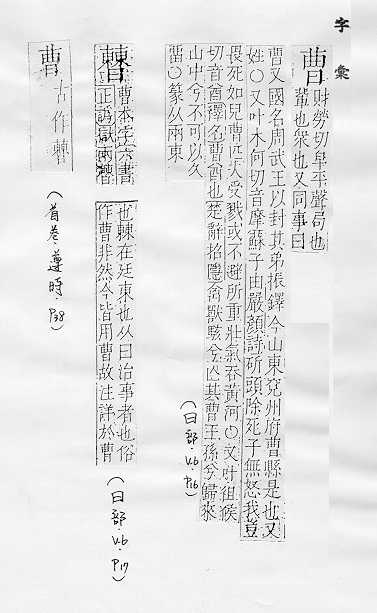 字彙
曹
財勞切皁平聲局也
輩也衆也又同事曰
曹又國名周武王以封其弟振鐸今山東兗州府曹縣是也又
姓○又叶木何切音摩蘇子由嚴顏詩斫頭除死子無怒我豈
畏死如兒曹匹夫受戮或不避所重壯氣吞黃河○又叶徂候
切音酋釋名曹酋也楚辭招隱禽獸駭兮亡其曹王孫兮歸來
山中兮不可以久
畱○篆从兩東
(曰部·v.6 P.16)
曹本字六書
正譌獄兩曹
也在廷東也从曰治事者也俗
作曹非然今皆用曹故注詳於曹
(曰部·v.6·P.17)
曹
古作
(首卷·遵時·P.38)